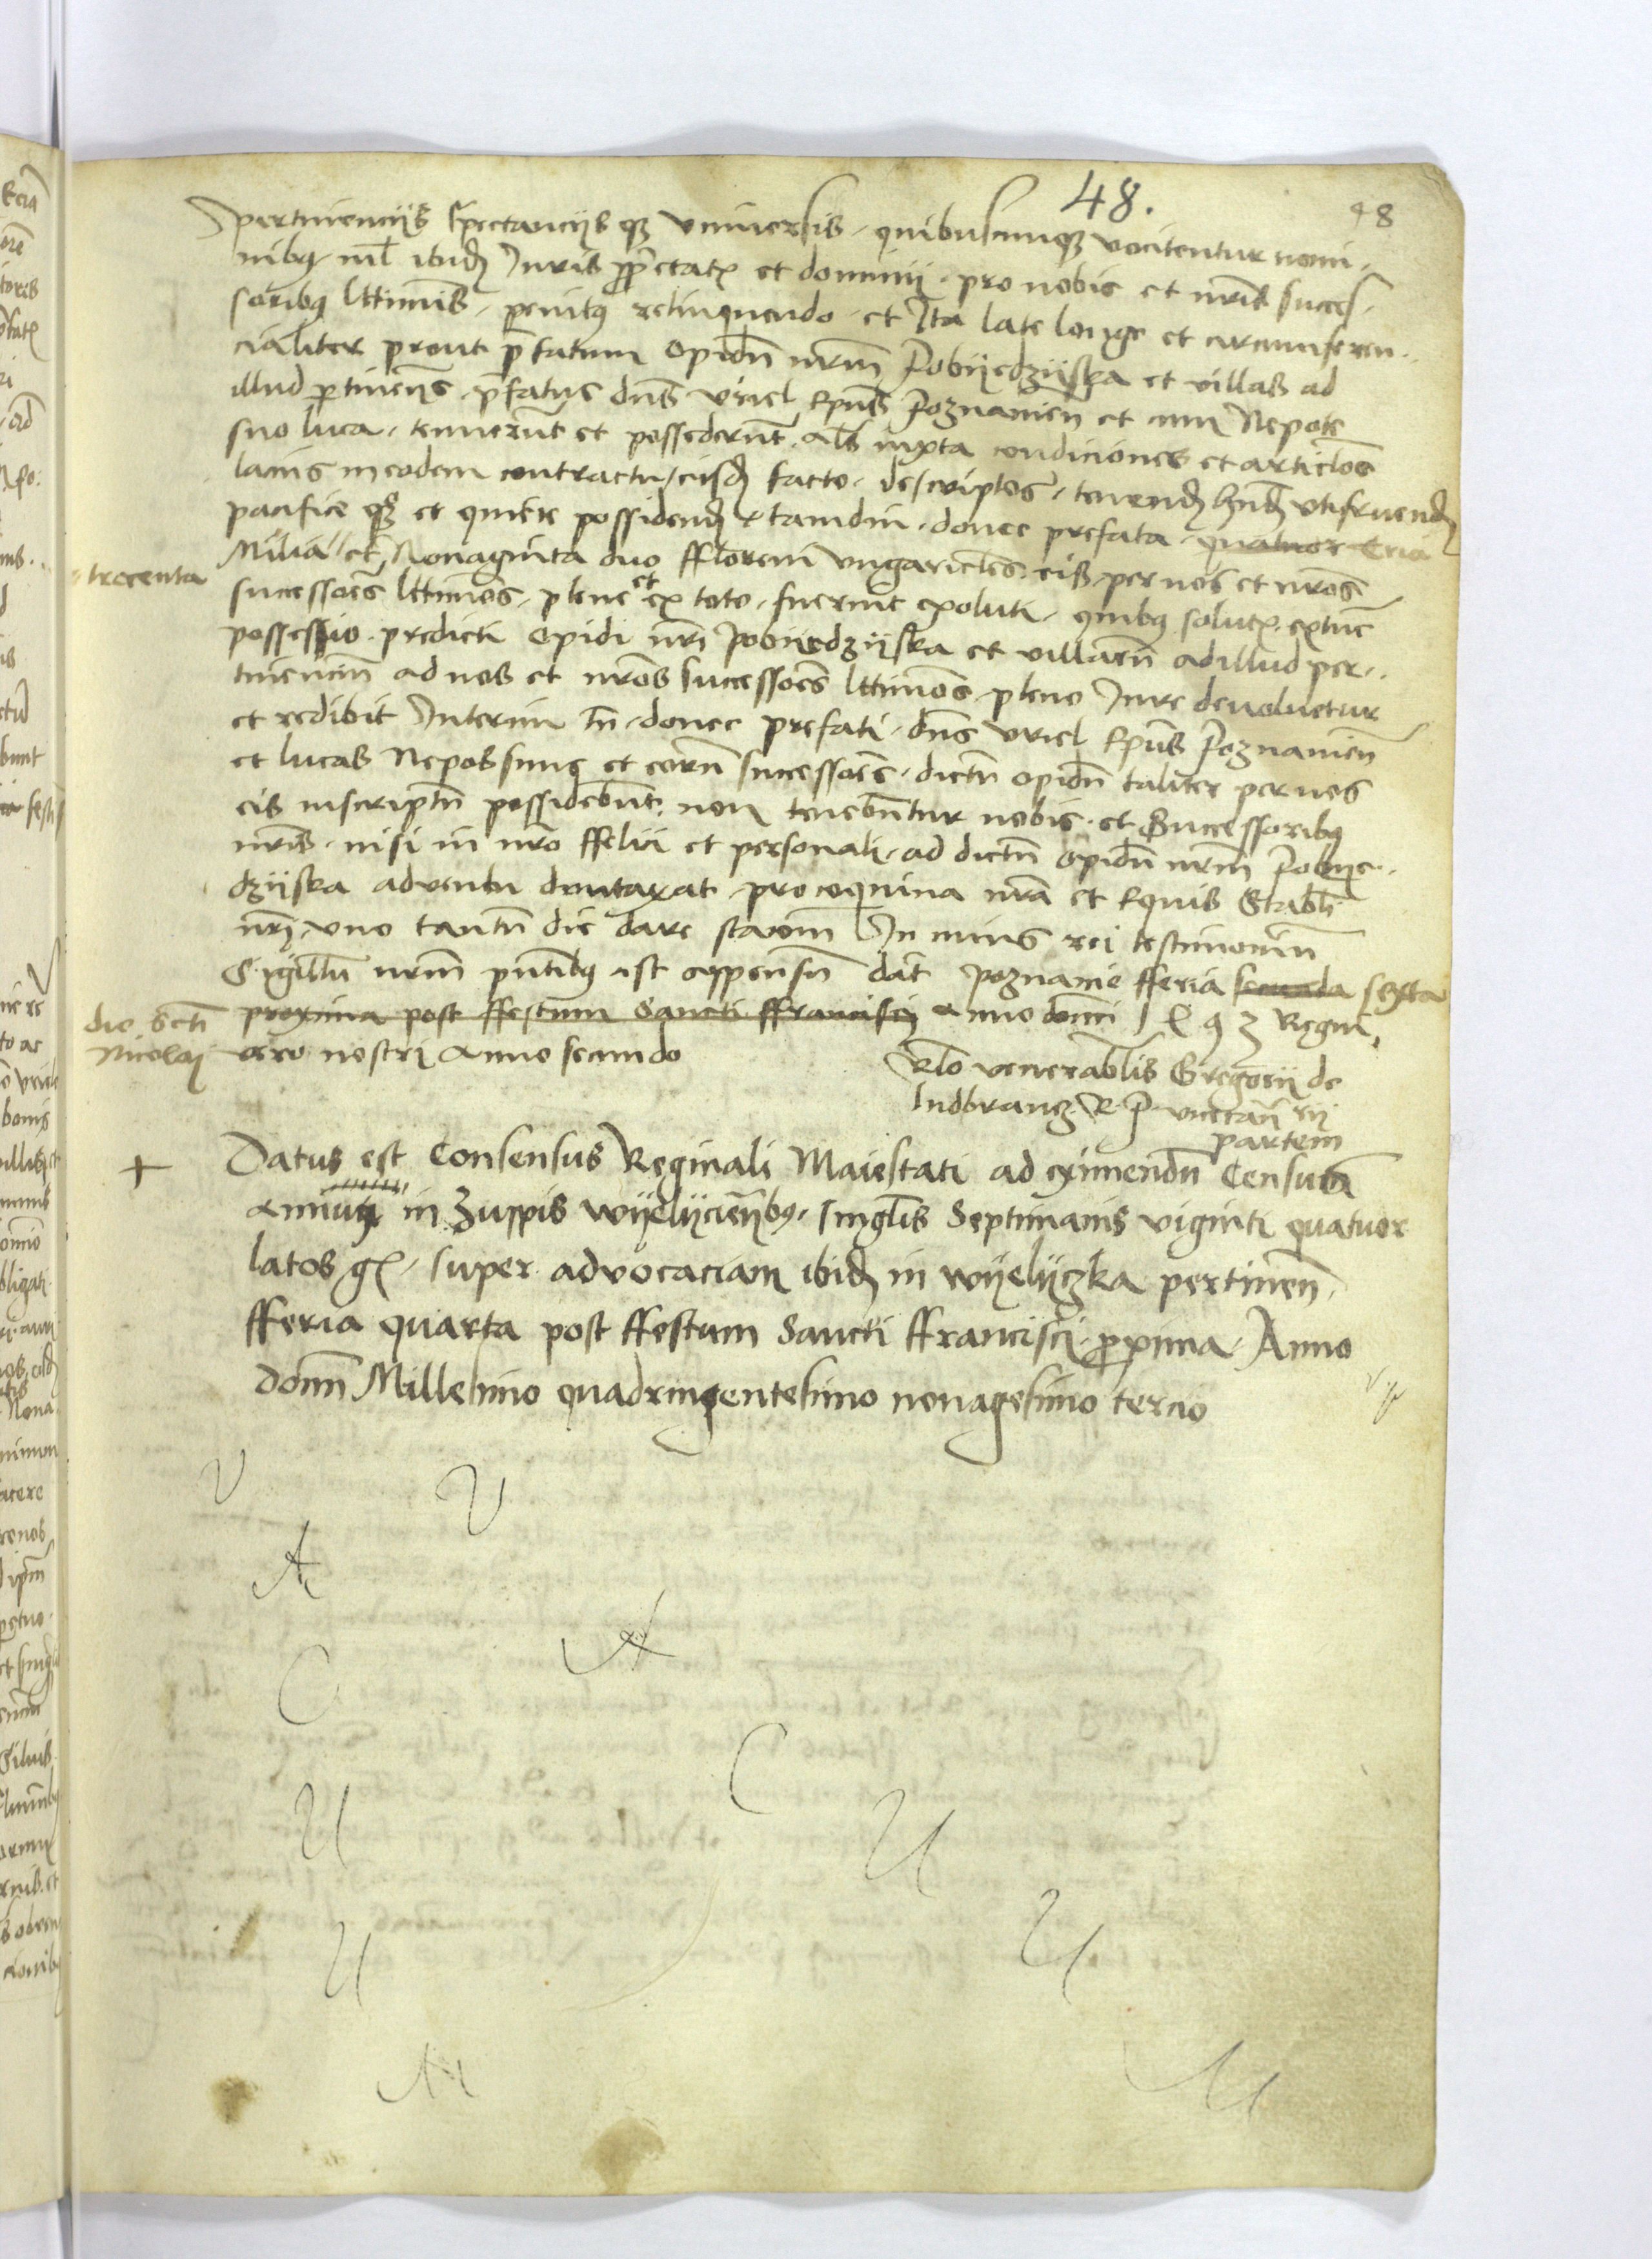 48.
48
pertinencijs spectancijs q3 vniuersis · quibuscumq3 vocitentur nomi-
nibus nil ibidem Juris proprietatis et dominij · pro nobis et nris succes-
soribus lttimis · penitus relinquendo · et Ita late longe et circumferen-
cialiter prout prefatum opidum nrm Pobyedzyska et villas ad
illud pertinentes prefatus dns Vriel Epus Poznanien et cum Nepote
suo luca · tenuerunt et possederunt als iuxta condiciones et articlos
lacius in eodem contractu eisdem facto · descriptos · tenend hnd vtifruend
pacifice q3 et quiete possidend tamdiu · donec prefata quatuor Tria
trecenta
Milia et Nonaginta duo fflorenj vngaricales eis per nos et nros
successores lttimos · plene et ex toto · fuerint exoluti · quibus solutis extunc
possessio predicti opidi nri Pobyedzyska et villarum ad illud per-
tinencium ad nos et nros successores lttimos pleno Jure deuoluetur
et redibit Interim tn · donec prefati · dns Vriel Epus Poznanien
et lucas Nepos suus et eorum successores · dictum opidum taliter per nos
eis inscriptum possidebunt non tenebuntur nobis · et Successoribus
nris · nisi in nro ffelici et personali · ad dictum opidum nrm Pobye-
dzyska aduentu dumtaxat pro coquina nra et Equis Stabli
nri vno tantum die dare stacionem In cuius rei testimonium
Sigillum nrm pntibus est appensum dat Poznanie fferia secunda sexta
die scti
Nicolaj
proxima post ffestum Sancti ffrancisci Anno domini 1 4 9 3 Regni
vero nostri Anno secundo
Rlo venerabilis Gregorij de
ludbrancz R · P · vicecan
partem
+
Datus est Consensus Reginali Maiestati ad eximendum Censum
annuum in Zuppis wyelycienbus · singlis Septimanis viginti quatuor
latos g · super advocaciam ibidem in wyelyczka pertinen
fferia quarta post ffestum Sancti ffrancisci proxima · Anno
domi Millesimo quadringentesimo nonagesimo tercio
V V
A A
C C
U U
U U
M M